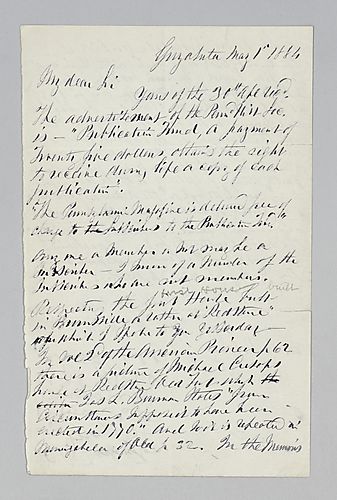 May 1st 1884
My dear Sir
Yours of the 30th
The advertisement of the Penna Hist. Soc.
is — "Publication Fund, a payment of
Twenty five dollars, obtains the right
to receive during life a copy of each
publication".
"The Pennsylvania Magazine is delivered free of
charge to the subscribers to the Publication
Any one a Member or not may be a
Subscriber — I know of a number of the
Subscribers who are not members.
Respecting the first House built
in Brownsville
which I spoke to you yesterday
In Vol 2d of the American Pioneer p 62
there is a picture of Michael Cresaps
house at Redstone Old fort which the
Jas L. Bowman States "from
circumstances supposed to have been
erected in 1770." And this is repeated in
p 32. In the Memoirs